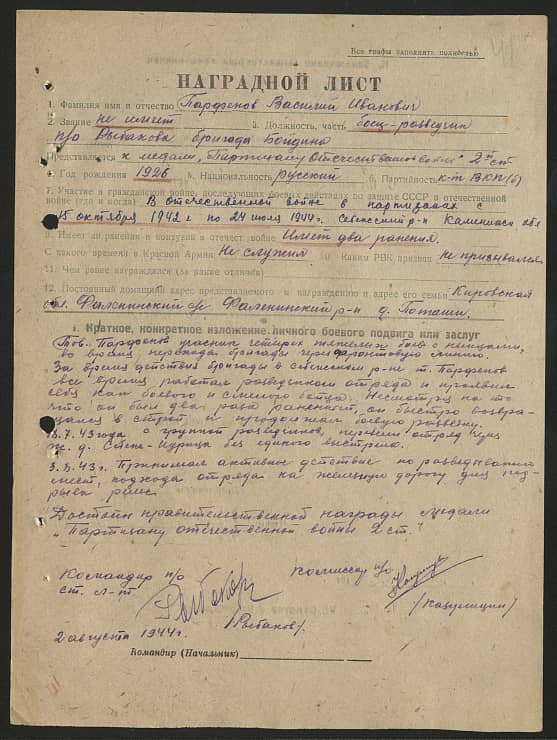 Все графы заполнять полностью
НАГРАДНОЙ ЛИСТ
1. Фамилия имя и отчество Парфенов Василий Иванович
2. Звание не имеет 3. Должность, часть боец-разведчик
п/о Рыбакова бригады Бойдина
Представляется к медали "Партизану Отечественной войны" 2й ст.
4. Год рождения 1926 5. Национальность русский 6. Партийность к-т ВКП(б)
7. Участие в гражданской войне, последующих боевых действиях по защите СССР и отечественной
войне (где и когда) В отечественной войне в партизанах с
15 октября 1942 г по 24 июля 1944 г. Себежский р-н Калининск обл
8. Имеет ли ранения и контузии в отечест. войне Имеет два ранения.
С какого времени в Красной Армии Не служил 10. Каким РВК призван не призывался
11. Чем ранее награждался (за какие отличия)
12. Постоянный домашний адрес представляемого к награждению и адрес его семьи Кировская
обл. Фаленский р-н д. Поташи
I. Краткое, конкретное изложение личного боевого подвига или заслуг
Тов. Парфенов участник четырех тяжелых боев с немцами,
во время перехода бригады через фронтовую линию.
За время действия бригады в Себежском р-не т. Парфенов
все время работал разведчиком отряда и проявил
себя как боевого и смелого бойца. Несмотря на то
что он был два раза раненый, он быстро возвра-
щался в строй и продолжал боевую разведку.
7.43 года с группой разведчиков, перевел отряд через
ж. д. без единого выстрела.
3. 43 г. Принимал активное действие по разведыванию
мест, подхода отряда на железную дорогу для под-
рыва рельс.
Достоин правительственной награды медали
"Партизану отечественной войны 2 ст."
Командир п/о Комиссар п/о
ст. л-т
/Рыбаков/
2 августа 1944 г.
Командир (Начальник)